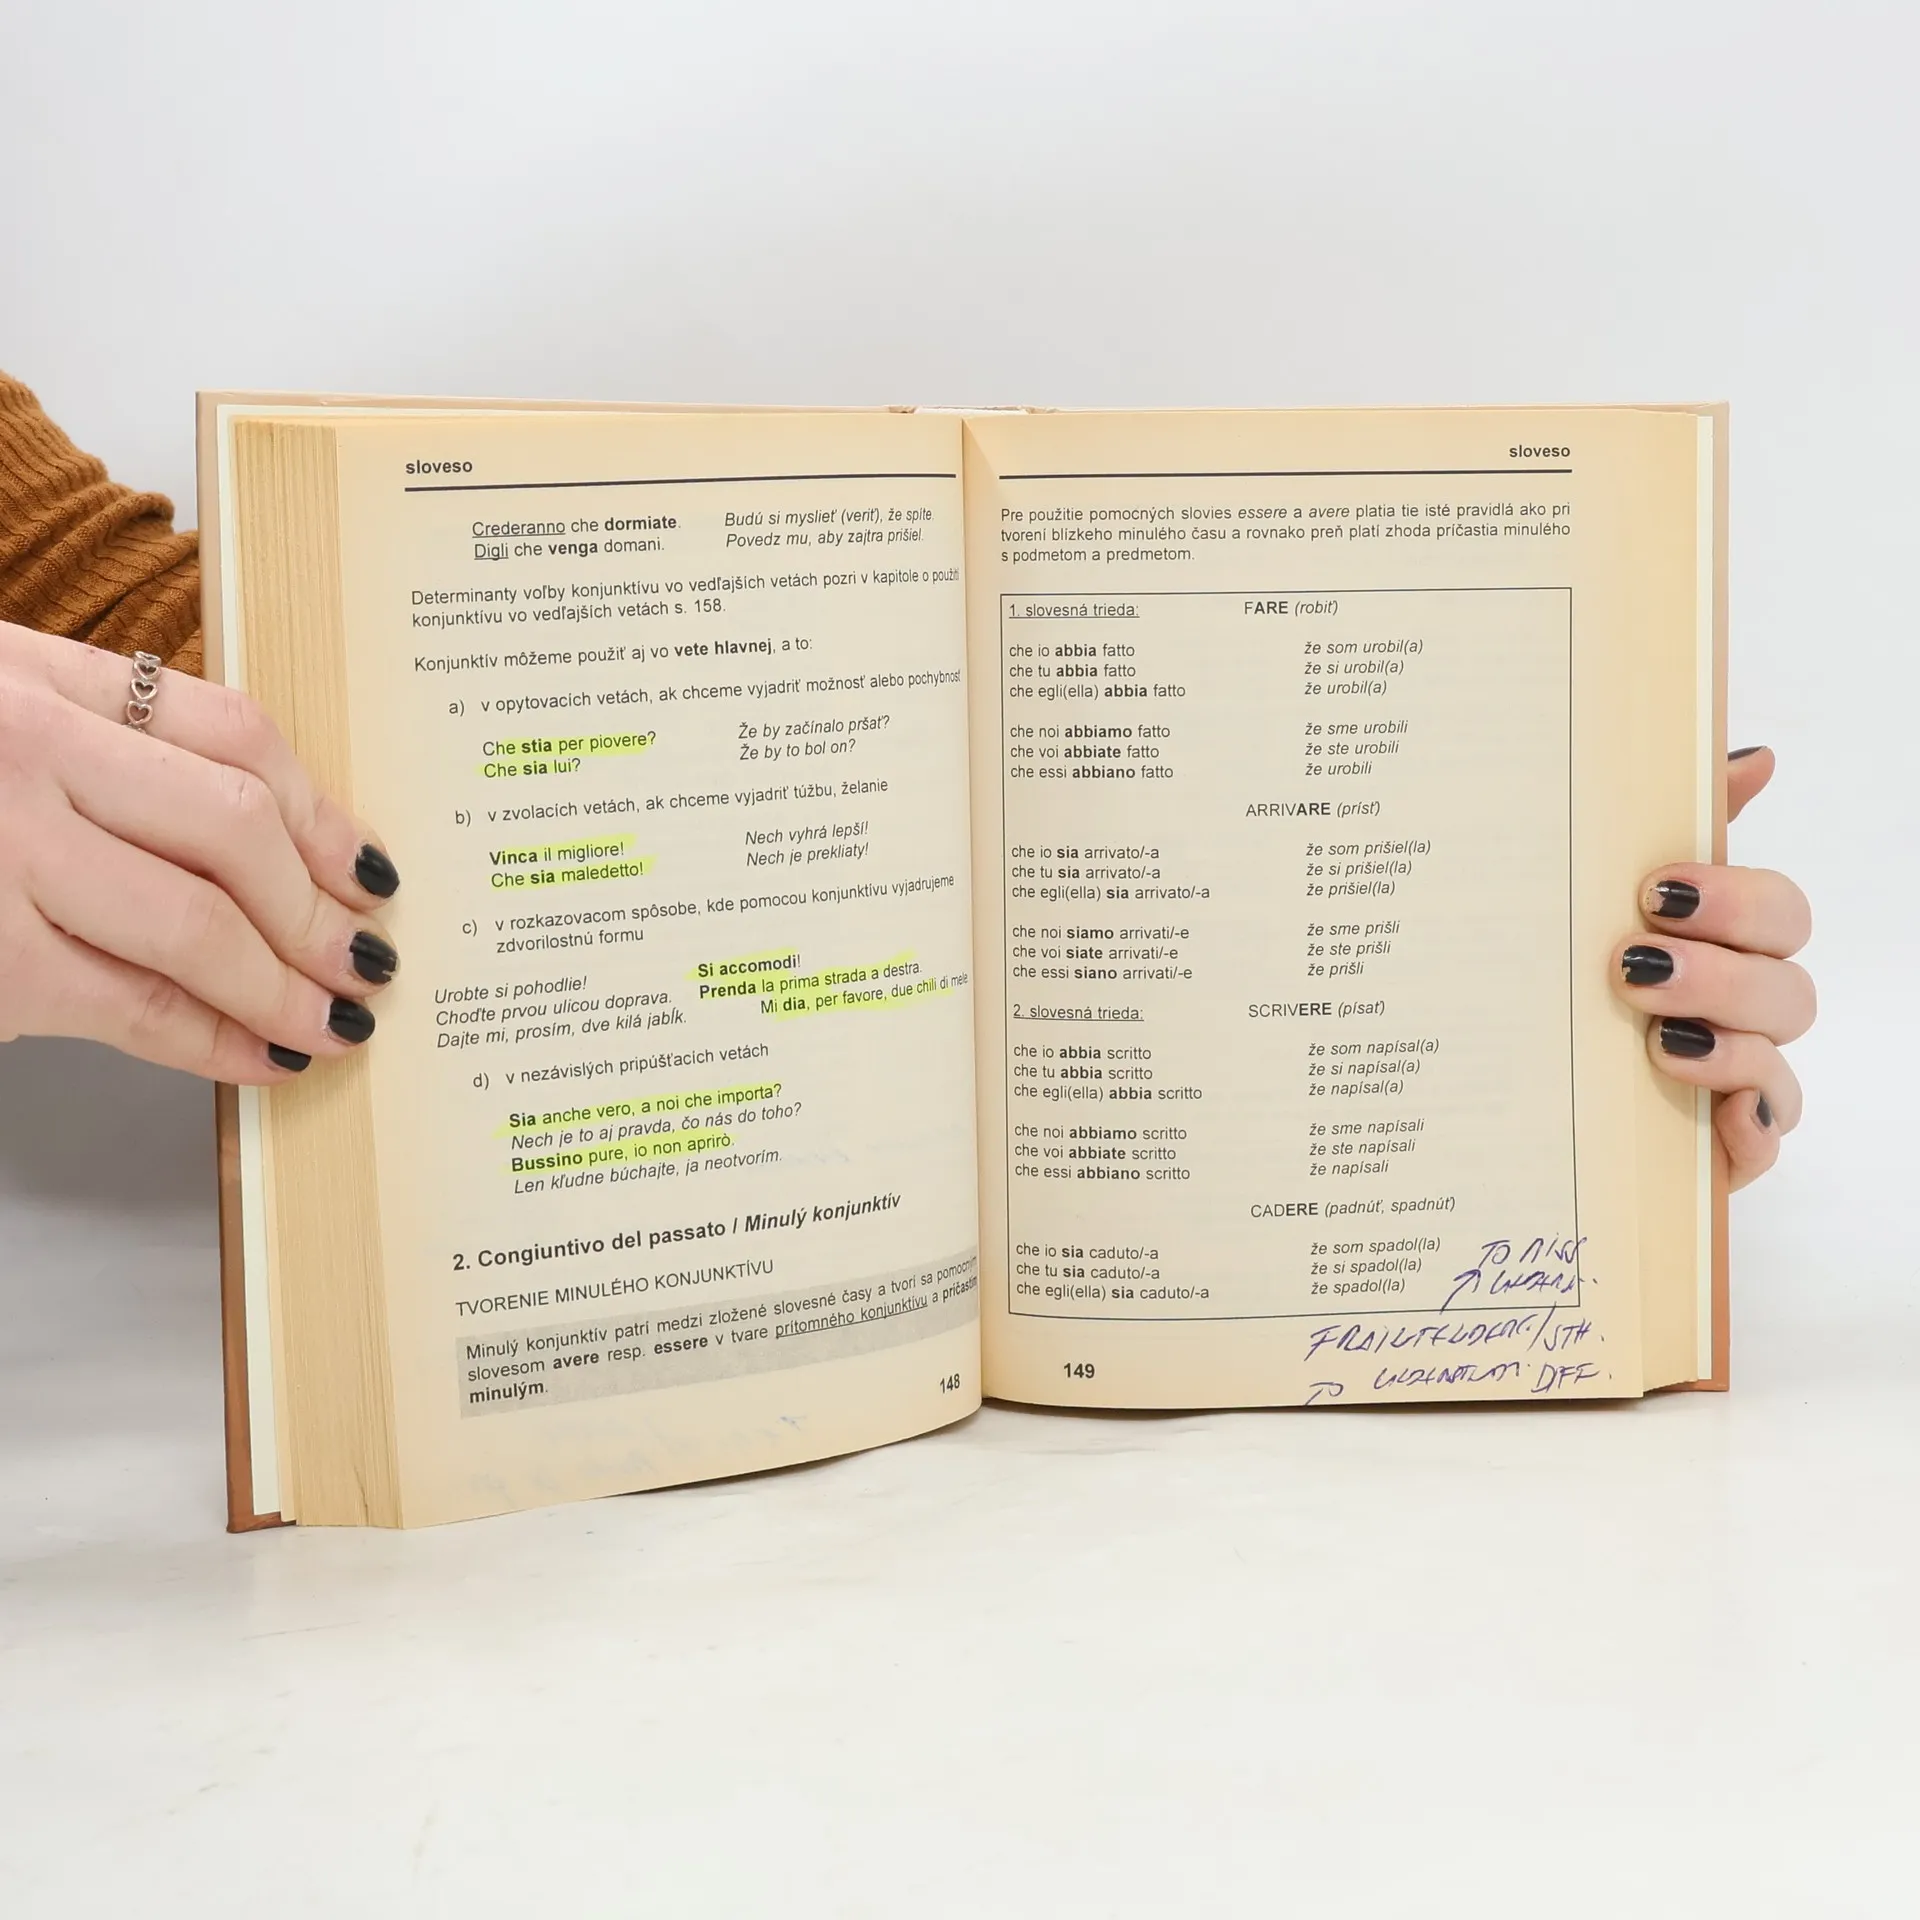 sloveso
Crederanno che dormiate. Budú si myslieť (veriť), že spíte.
Digli che venga domani. Povedz mu, aby zajtra prišiel.
Determinanty voľby konjunktívu vo vedľajších vetách pozri v kapitole o použití
konjunktívu vo vedľajších vetách s. 158.
Konjunktív môžeme použiť aj vo vete hlavnej, a to:
a) v opytovacích vetách, ak chceme vyjadriť možnosť alebo pochybnosť
Che stia per piovere? Že by začínalo pršať?
Che sia lui? Že by to bol on?
b) v zvolacích vetách, ak chceme vyjadriť túžbu, želanie
Vinca il migliore! Nech vyhrá lepší!
Che sia maledetto! Nech je prekliaty!
c) v rozkazovacom spôsobe, kde pomocou konjunktívu vyjadrujeme
zdvorilostnú formu
Urobte si pohodlie! Si accomodi!
Choďte prvou ulicou doprava. Prenda la prima strada a destra.
Dajte mi, prosím, dve kilá jabĺk. Mi dia, per favore, due chili di mele
d) v nezávislých pripúšťacích vetách
Sia anche vero, a noi che importa?
Nech je to aj pravda, čo nás do toho?
Bussino pure, io non aprirò.
Len kľudne búchajte, ja neotvorím.
2. Congiuntivo del passato / Minulý konjunktív
TVORENIE MINULÉHO KONJUNKTÍVU
Minulý konjunktív patrí medzi zložené slovesné časy a tvorí sa pomocným
slovesom avere resp. essere v tvare prítomného konjunktívu a príčastím
minulým.
148
sloveso
Pre použitie pomocných slovies essere a avere platia tie isté pravidlá ako pri
tvorení blízkeho minulého času a rovnako preň platí zhoda príčastia minulého
s podmetom a predmetom.
1. slovesná trieda: FARE (robiť)
che io abbia fatto že som urobil(a)
che tu abbia fatto že si urobil(a)
che egli(ella) abbia fatto že urobil(a)
che noi abbiamo fatto že sme urobili
che voi abbiate fatto že ste urobili
che essi abbiano fatto že urobili
ARRIVARE (prísť)
che io sia arrivato/-a že som prišiel(la)
che tu sia arrivato/-a že si prišiel(la)
che egli(ella) sia arrivato/-a že prišiel(la)
che noi siamo arrivati/-e že sme prišli
che voi siate arrivati/-e že ste prišli
che essi siano arrivati/-e že prišli
2. slovesná trieda: SCRIVERE (písať)
che io abbia scritto že som napísal(a)
che tu abbia scritto že si napísal(a)
che egli(ella) abbia scritto že napísal(a)
che noi abbiamo scritto že sme napísali
che voi abbiate scritto že ste napísali
che essi abbiano scritto že napísali
CADERE (padnúť, spadnúť)
che io sia caduto/-a že som spadol(la)
che tu sia caduto/-a že si spadol(la)
che egli(ella) sia caduto/-a že spadol(la)
TO MISS
STH.
TO
149